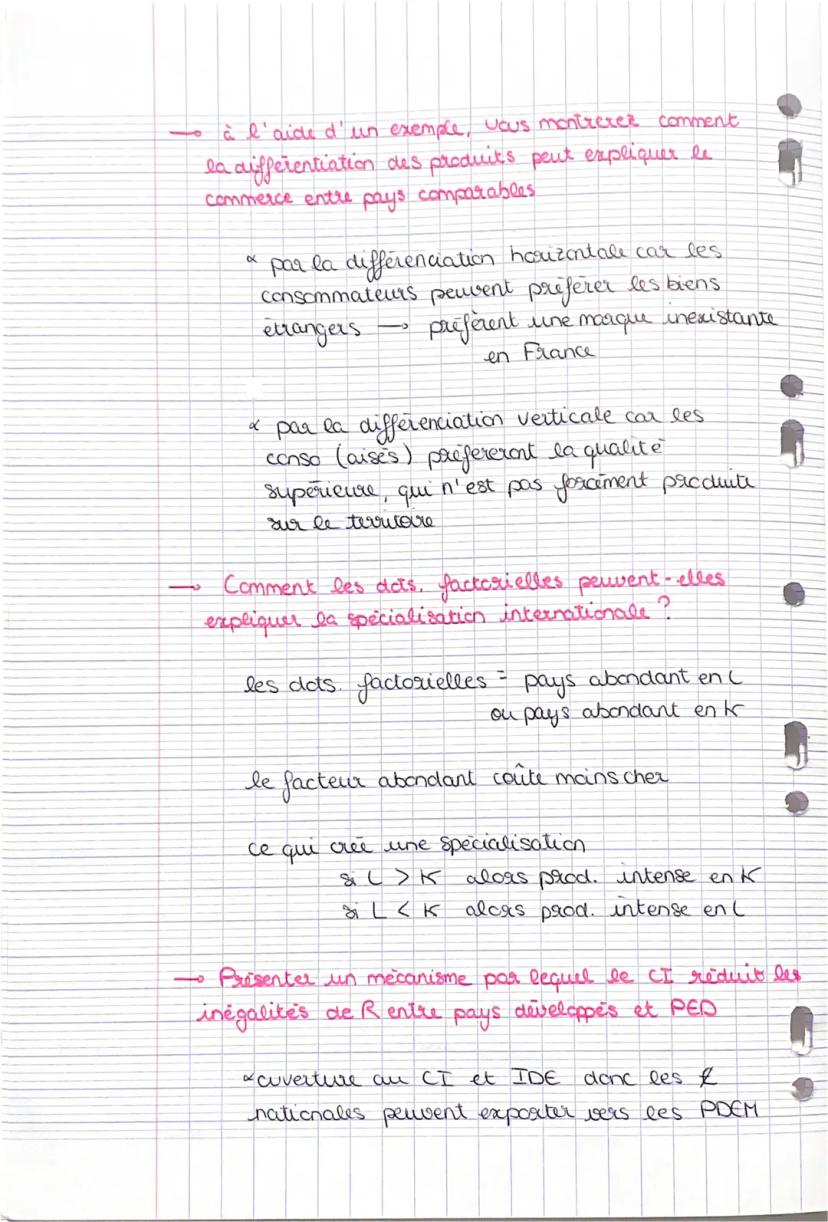 → à l'aide d'un exemple, vous montrerez comment
la différentiation des produits peut expliquer le
commerce entre pays comparables
× par la différenciation horizontale car les
consommateurs peuvent préférer les biens
étrangers → préfèrent une marque inexistante
en France
× par la différenciation verticale car les
conso (aisés) préfèreront la qualité
supérieure, qui n'est pas forcément produite
sur le territoire
→ Comment les dots. factorielles peuvent-elles
expliquer la spécialisation internationale ?
les dots. factorielles = pays abondant en L
ou pays abondant en K
le facteur abondant coûte moins cher
ce qui crée une spécialisation
si L > K alors prod. intense en K
si L < K alors prod. intense en L
→ Présenter un mécanisme par lequel le CI réduit les
inégalités de R entre pays développés et PED
× ouverture au CI et IDE donc les
nationales peuvent exporter vers les PDEM